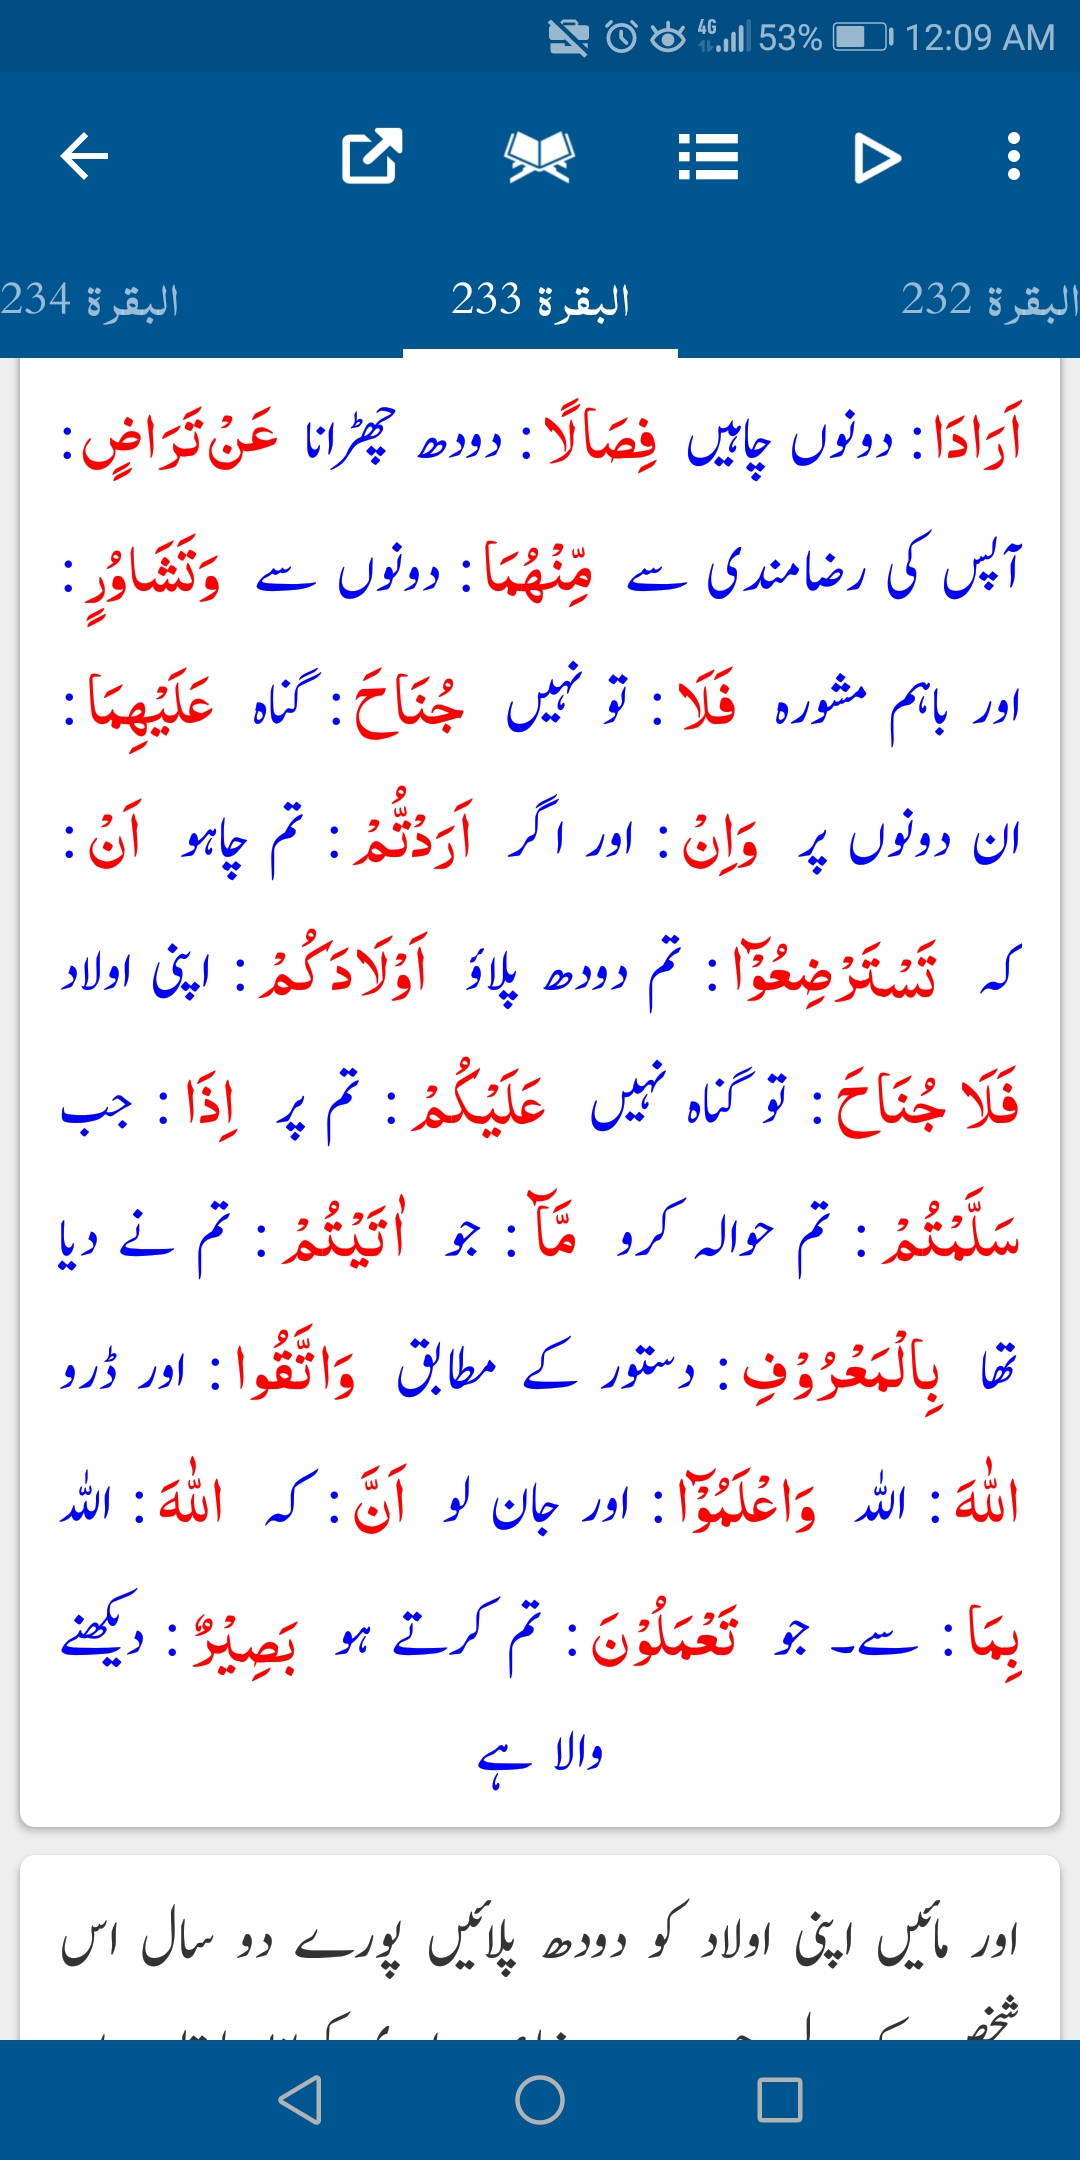 53% 12:09 AM
البقرة 232 البقرة 233 البقرة 234
اَرَادَا : دونوں چاہیں فِصَالًا : دودھ چھڑانا عَنْ تَرَاضٍ :
آپس کی رضامندی سے مِّنْهُمَا : دونوں سے وَتَشَاوُرٍ :
اور باہم مشورہ فَلَا : تو نہیں جُنَاحَ : گناہ عَلَيْهِمَا :
ان دونوں پر وَاِنْ : اور اگر اَرَدْتُّمْ : تم چاہو اَنْ :
کہ تَسْتَرْضِعُوْٓا : تم دودھ پلاؤ اَوْلَادَكُمْ : اپنی اولاد
فَلَا جُنَاحَ : تو گناہ نہیں عَلَيْكُمْ : تم پر اِذَا : جب
سَلَّمْتُمْ : تم حوالہ کرو مَّآ : جو اٰتَيْتُمْ : تم نے دیا
تھا بِالْمَعْرُوْفِ : دستور کے مطابق وَاتَّقُوا : اور ڈرو
اللّٰهَ : اللہ وَاعْلَمُوْٓا : اور جان لو اَنَّ : کہ اللّٰهَ : اللہ
بِمَا : سے۔ جو تَعْمَلُوْنَ : تم کرتے ہو بَصِيْرٌ : دیکھنے
والا ہے
اور مائیں اپنی اولاد کو دودھ پلائیں پورے دو سال اس
شخص